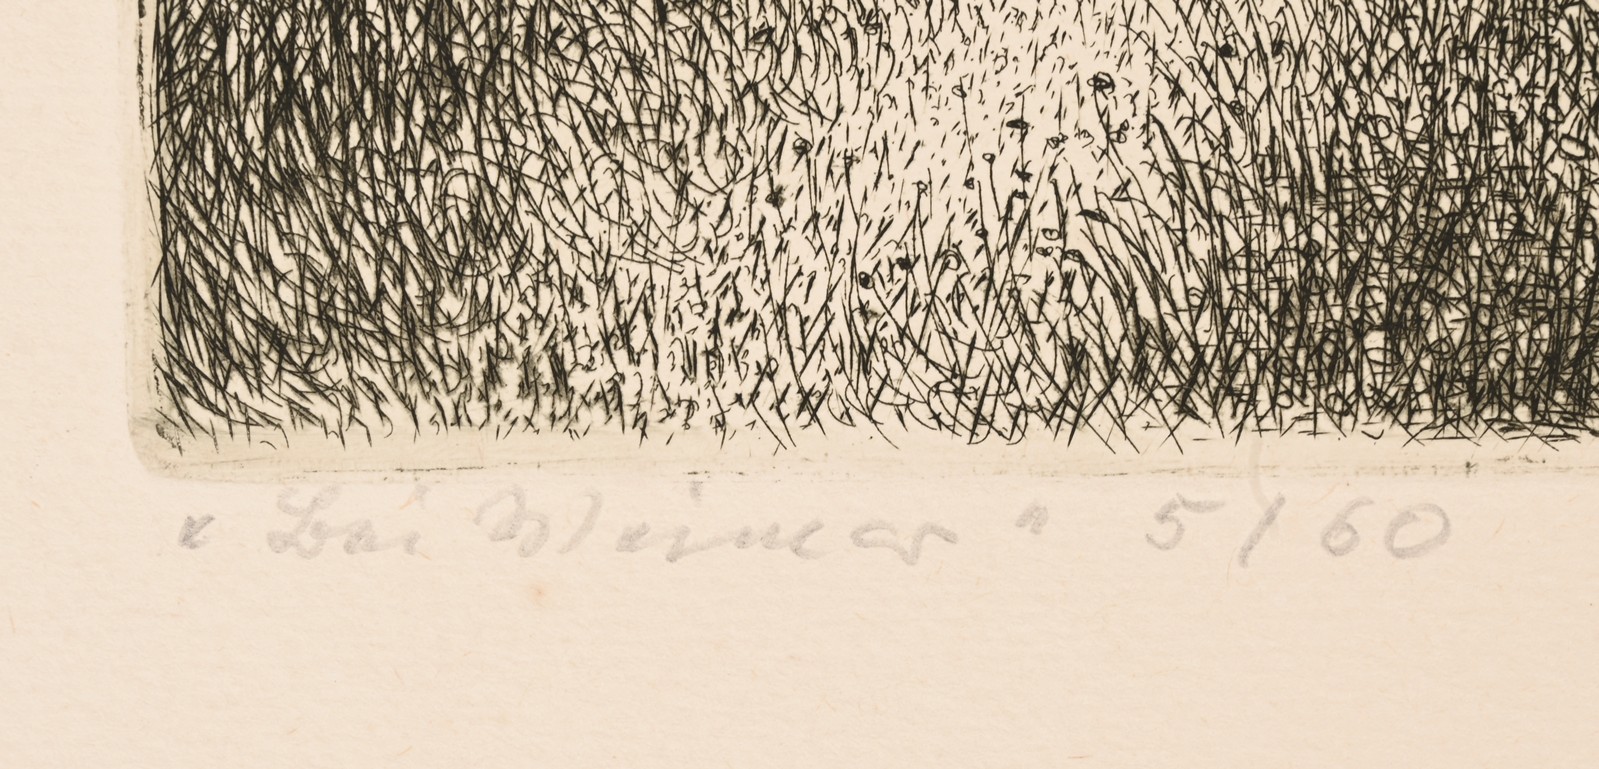 "Bei Weimar" 5/60